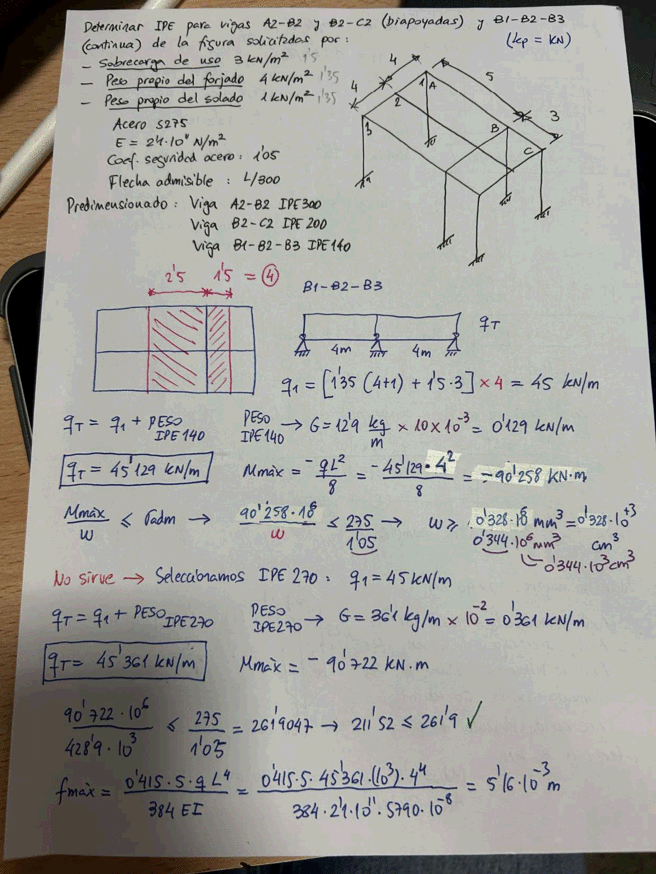 Determinar IPE para vigas A2-B2 y B2-C2 (biapoyadas) y B1-B2-B3
(continua) de la figura solicitadas por: (kp = KN)
- Sobrecarga de uso 3 KN/m² 1'5
- Peso propio del forjado 4 KN/m² 1'35
- Peso propio del solado 1 KN/m² 1'35
Acero S275
E = 2'1·10¹¹ N/m²
Coef. seguridad acero: 1'05
Flecha admisible : L/300
Predimensionado: Viga A2-B2 IPE300
Viga B2-C2 IPE 200
Viga B1-B2-B3 IPE140
4
4
5
3
1
A
2
3
B
C
2'5 1'5 = 4
B1-B2-B3
qT
4m 4m
q1 = [1'35 (4+1) + 1'5·3] × 4 = 45 KN/m
qT = q1 + PESO IPE 140
PESO IPE140 → G = 12'9 kg/m × 10 × 10⁻³ = 0'129 KN/m
qT = 45'129 KN/m
Mmáx = -qL²/8 = -45'129·4²/8 = -90'258 KN·m
Mmáx/W ≤ σadm → 90'258·10⁶/W ≤ 275/1'05 → W ≥ 0'328·10⁶ mm³ = 0'328·10⁺³ cm³
0'344·10⁶ mm³
0'344·10³ cm³
No sirve → Seleccionamos IPE 270 : q1 = 45 KN/m
qT = q1 + PESO IPE270
PESO IPE270 → G = 36'1 kg/m × 10⁻² = 0'361 KN/m
qT = 45'361 KN/m
Mmáx = -90'722 KN·m
90'722·10⁶/428'9·10³ ≤ 275/1'05 = 261'9047 → 211'52 ≤ 261'9 ✓
fmáx = 0'415·5·q L⁴/384 EI = 0'415·5·45'361·(10³)·4⁴/384·2'1·10¹¹·5790·10⁻⁸ = 5'16·10⁻³ m